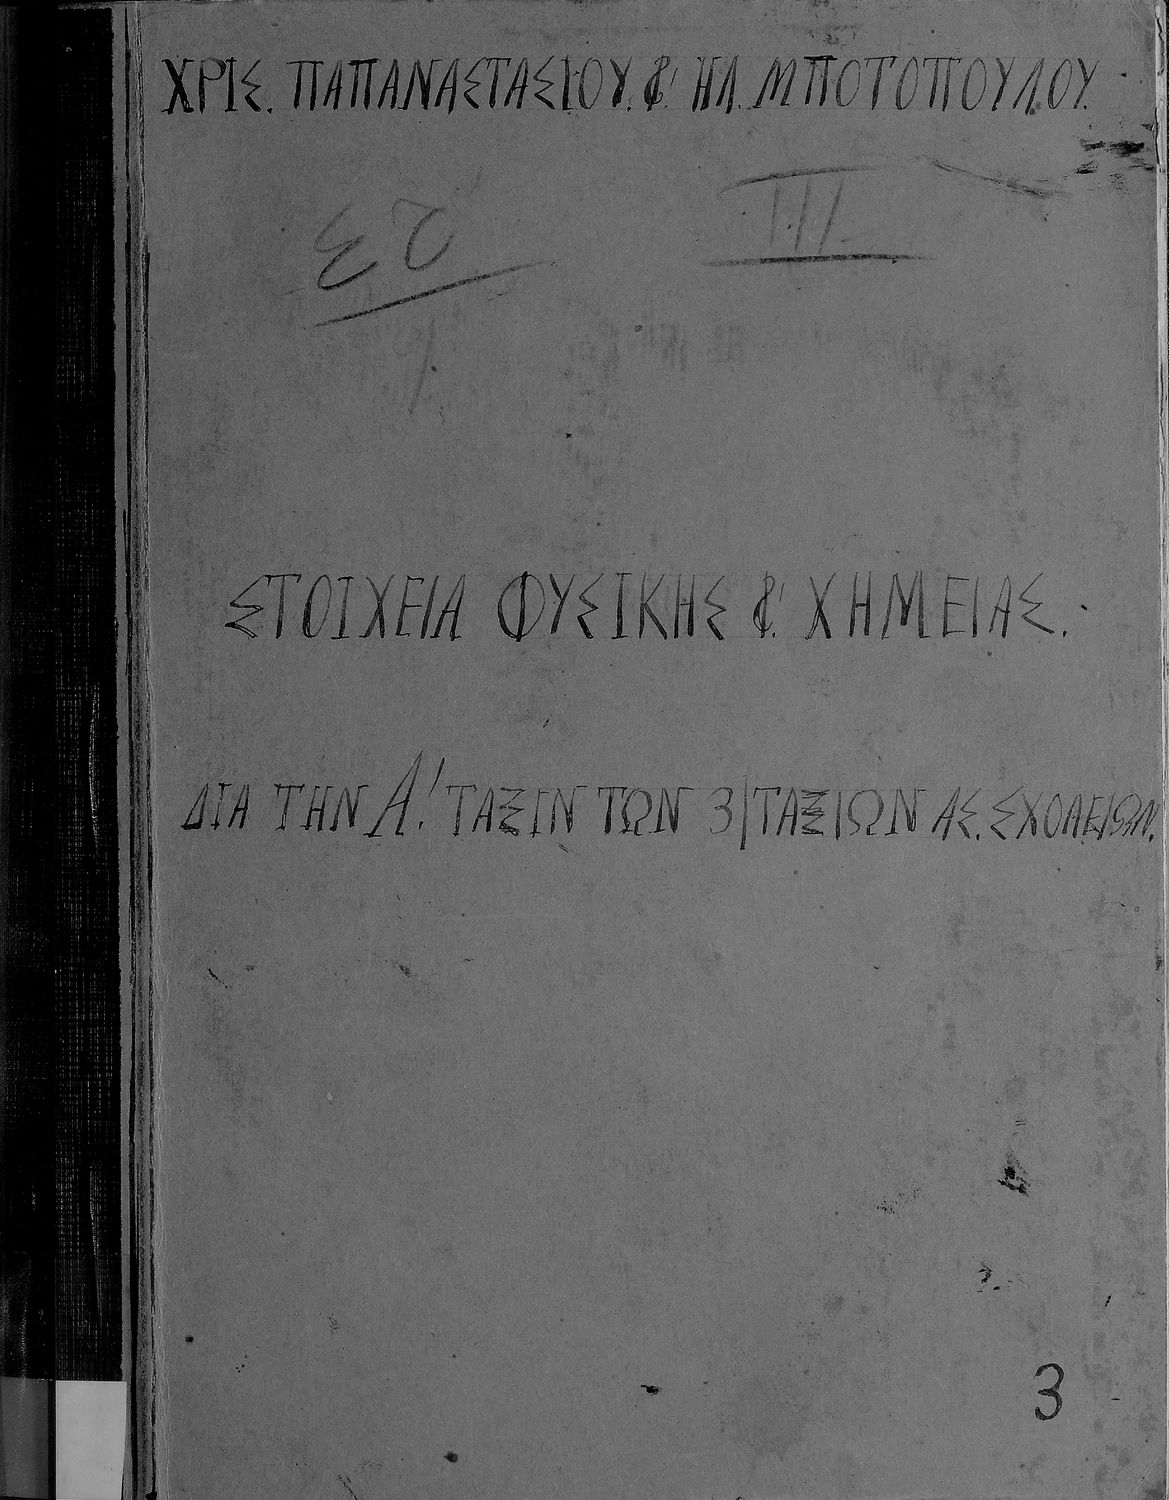 ΧΡΙΣ. ΠΑΠΑΝΑΣΤΑΣΙΟΥ. &' ΗΛ. ΜΠΟΤΟΠΟΥΛΟΥ.
III
ΣΤΟΙΧΕΙΑ ΦΥΣΙΚΗΣ &' ΧΗΜΕΙΑΣ.
ΔΙΑ ΤΗΝ Α'. ΤΑΞΙΝ ΤΩΝ 3/ΤΑΞΙΩΝ ΑΣ. ΣΧΟΛΕΙΩΝ.
3